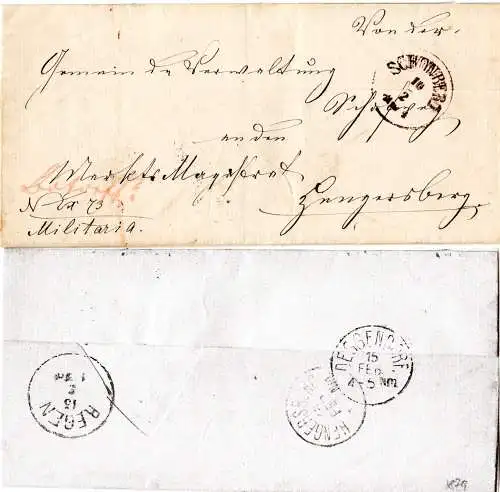 Von der
Gemeinde Verwaltung
SCHÖNBERG
10
2
an den
Markts Magistrat
Hengersberg.
N Ex 73
Militaria.
DEGGENDORF
15
FEB
4-5 NM
REGEN
13
2
HENGERSBERG
1879